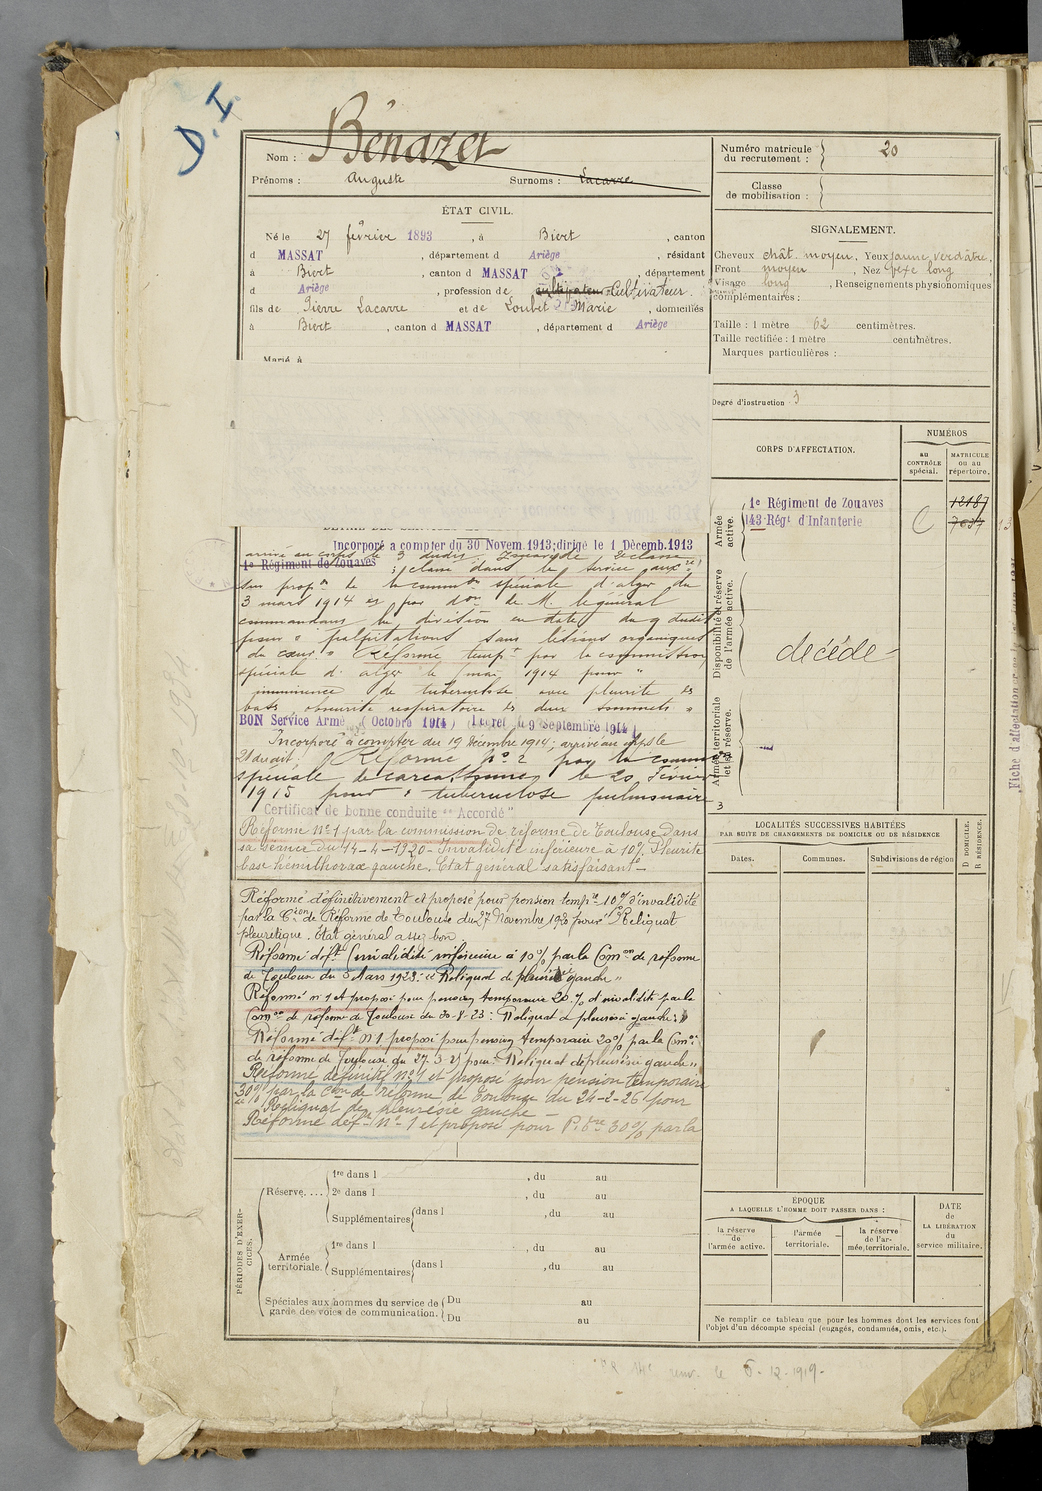 D.I.
Nom : Bénazet
Prénoms : Auguste Surnoms : Lacarre
ÉTAT CIVIL.
Né le 27 février 1893, à Biert, canton
d MASSAT, département d Ariège, résidant
à Biert, canton d MASSAT, département
d Ariège, profession de cultivateur Cultivateur.
fils de Pierre Lacarre et de Loubet Marie, domiciliés
à Biert, canton d MASSAT, département d Ariège
Marié à
Incorporé a compter du 30 Novem. 1913; dirigé le 1 Décemb. 1913
arrivé au corps le 3 dudit. Zouave de 2e classe
1e Régiment de Zouaves ; classé dans le service auxre
sur propon de la common spéciale d'alger du
3 mars 1914 et par don de M. le général
commandant la division en date du 9 dudit
pour " palpitations sans lésions organiques
du cœur. " Réformé tempt par la commission
spéciale d'alger le mai 1914 pour "
imminence de tuberculose avec pleurite es
bases obscurité respiratoire es deux sommets "
BON Service Armé (Octobre 1914) (Décret 9 Septembre 1914)
Incorporé à compter du 19 Décembre 1914; arrivé au corps le
21 du dit. Réformé No 2 par la comm
spéciale de Carcassonne le 20 Février
1915 pour " tuberculose pulmonaire
Certificat de bonne conduite "Accordé"
Réformé No 1 par la commission de réforme de Toulouse dans
sa séance du 14-4-1920 - Invalidité inférieure à 10% Pleurite
base hémithorax gauche. Etat général satisfaisant -
Réformé définitivement et proposé pour pension tempre 10% d'invalidité
par la Cion de Réforme de Toulouse du 27 Novembre 1920 pour " Reliquat
pleurétique. État général assez bon
Réformé déft (invalidité inférieure à 10%) par la Comon de réforme
de Toulouse du 5 Mars 1923: " Reliquat de pleurésie gauche "
Réformé n 1 et proposé pour pension temporaire 20% d'invalidité par la
Comon de réforme de Toulouse du 30-8-23 : " Reliquat de pleurésie gauche "
Réformé déft N 1 proposé pour pension temporaire 20% par la Comon
de réforme de Toulouse du 27-3-25 pour : " Reliquat de pleurésie gauche "
Réformé définitif No 1 et proposé pour pension temporaire
30% par la Cion de réforme de Toulouse du 24-2-26 pour
Reliquat de pleurésie gauche -
Réformé déft No 1 et proposé pour P. tre 30% par la
PÉRIODES D'EXERCICES.
Réserve....
1re dans l , du au
2e dans l , du au
Supplémentaires dans l , du au
Armée territoriale.
1re dans l , du au
Supplémentaires dans l , du au
Spéciales aux hommes du service de garde des voies de communication.
Du au
Du au
Numéro matricule du recrutement : 20
Classe de mobilisation :
SIGNALEMENT.
Cheveux chât. moyen, Yeux jaune verdâtre,
Front moyen, Nez vexe long
Visage long, Renseignements physionomiques
complémentaires :
Taille : 1 mètre 62 centimètres.
Taille rectifiée : 1 mètre centimètres.
Marques particulières :
Degré d'instruction 3
CORPS D'AFFECTATION.
NUMÉROS
au CONTRÔLE spécial.
MATRICULE ou au répertoire.
Armée active.
1e Régiment de Zouaves 12187
143 Régt d'Infanterie 7637
Disponibilité et réserve de l'armée active.
décédé
Armée territoriale et sa réserve.
LOCALITÉS SUCCESSIVES HABITÉES
PAR SUITE DE CHANGEMENTS DE DOMICILE OU DE RÉSIDENCE.
Dates. Communes. Subdivisions de région
D DOMICILE.
R RÉSIDENCE.
ÉPOQUE
A LAQUELLE L'HOMME DOIT PASSER DANS :
la réserve de l'armée active.
l'armée territoriale.
la réserve de l'armée territoriale.
DATE de LA LIBÉRATION du service militaire.
Ne remplir ce tableau que pour les hommes dont les services font
l'objet d'un décompte spécial (engagés, condamnés, omis, etc.).
renv. le 6-12-1919-